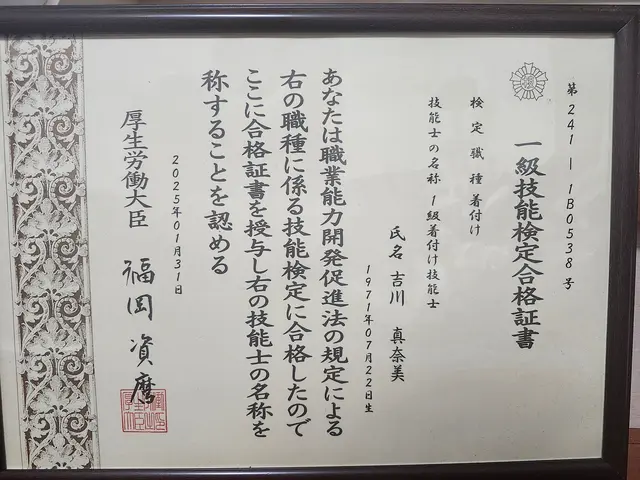 第241-1B0538号
一級技能検定合格証書
検定職種 着付け
技能士の名称 1級着付け技能士
氏名 吉川 真奈美
1971年07月22日生
あなたは職業能力開発促進法の規定による
右の職種に係る技能検定に合格したので
ここに合格証書を授与し右の技能士の名称を
称することを認める
2025年01月31日
厚生労働大臣 福岡資麿